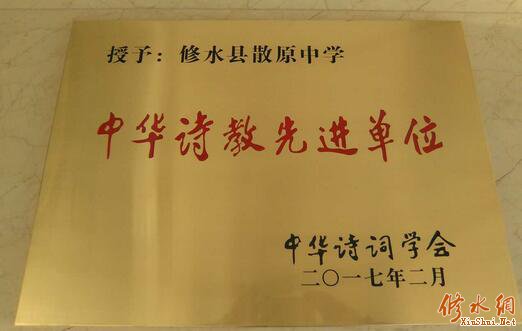 授予：修水县散原中学
中华诗教先进单位
中华诗词学会
二〇一七年二月
修水網
XiuShui.Net